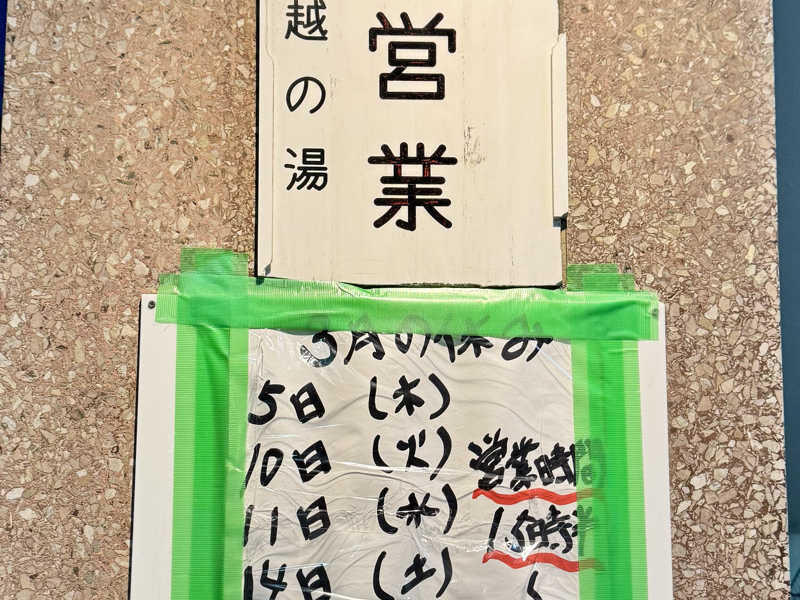 営業
越の湯
3月の休み
5日 (木)
10日 (火)
11日 (水)
14日 (土)
営業時間
15時半